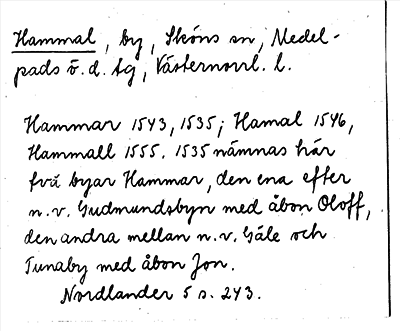 Hammal, by, Sköns sn, Medel-
pads ö. d. tg, Västernorrl. l.
Hammar 1543, 1535; Hamal 1546,
Hammall 1555. 1535 nämnas här
två byar Hammar, den ena efter
n. v. Gudmundsbyn med åbon Oloff,
den andra mellan n. v. Gäle och
Tunaby med åbon Jon.
Nordlander 5 s. 243.